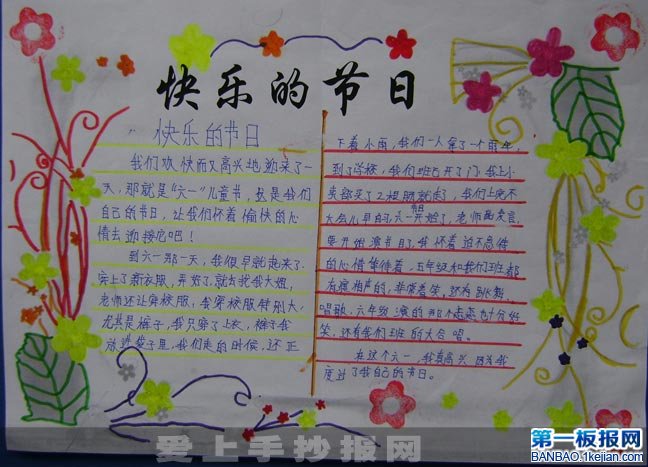 快乐的节日
快乐的节日
我们欢快而又高兴地迎来了一
天,那就是“六一”儿童节,这是我们
自己的节日,让我们怀着愉快的心
情去迎接它吧!
到六一那一天,我很早就起来了
穿上了新衣服,
老师还让穿校服,我穿校服特别大,
尤其是裤子,我只穿了上衣,裤子我
放进袋子里,我们走的时候,还正
下着小雨,我们一人拿了一个雨伞,
到了学校,我们班已开了门,我上小
卖部买了2根
大会儿早的六一开始了,老师
要开始演节目了,我怀着迫不急待
的心情等待着,五年级和我们班都
有演相声的,非常着笑,还有跳舞,
唱歌,六年级演的那个
笑,还有我们班的大合唱。
在这个六一,我真高兴 因为我
度过了我自己的节日。
爱上手抄报网
第一板报网
BANBAO.1kejian.com